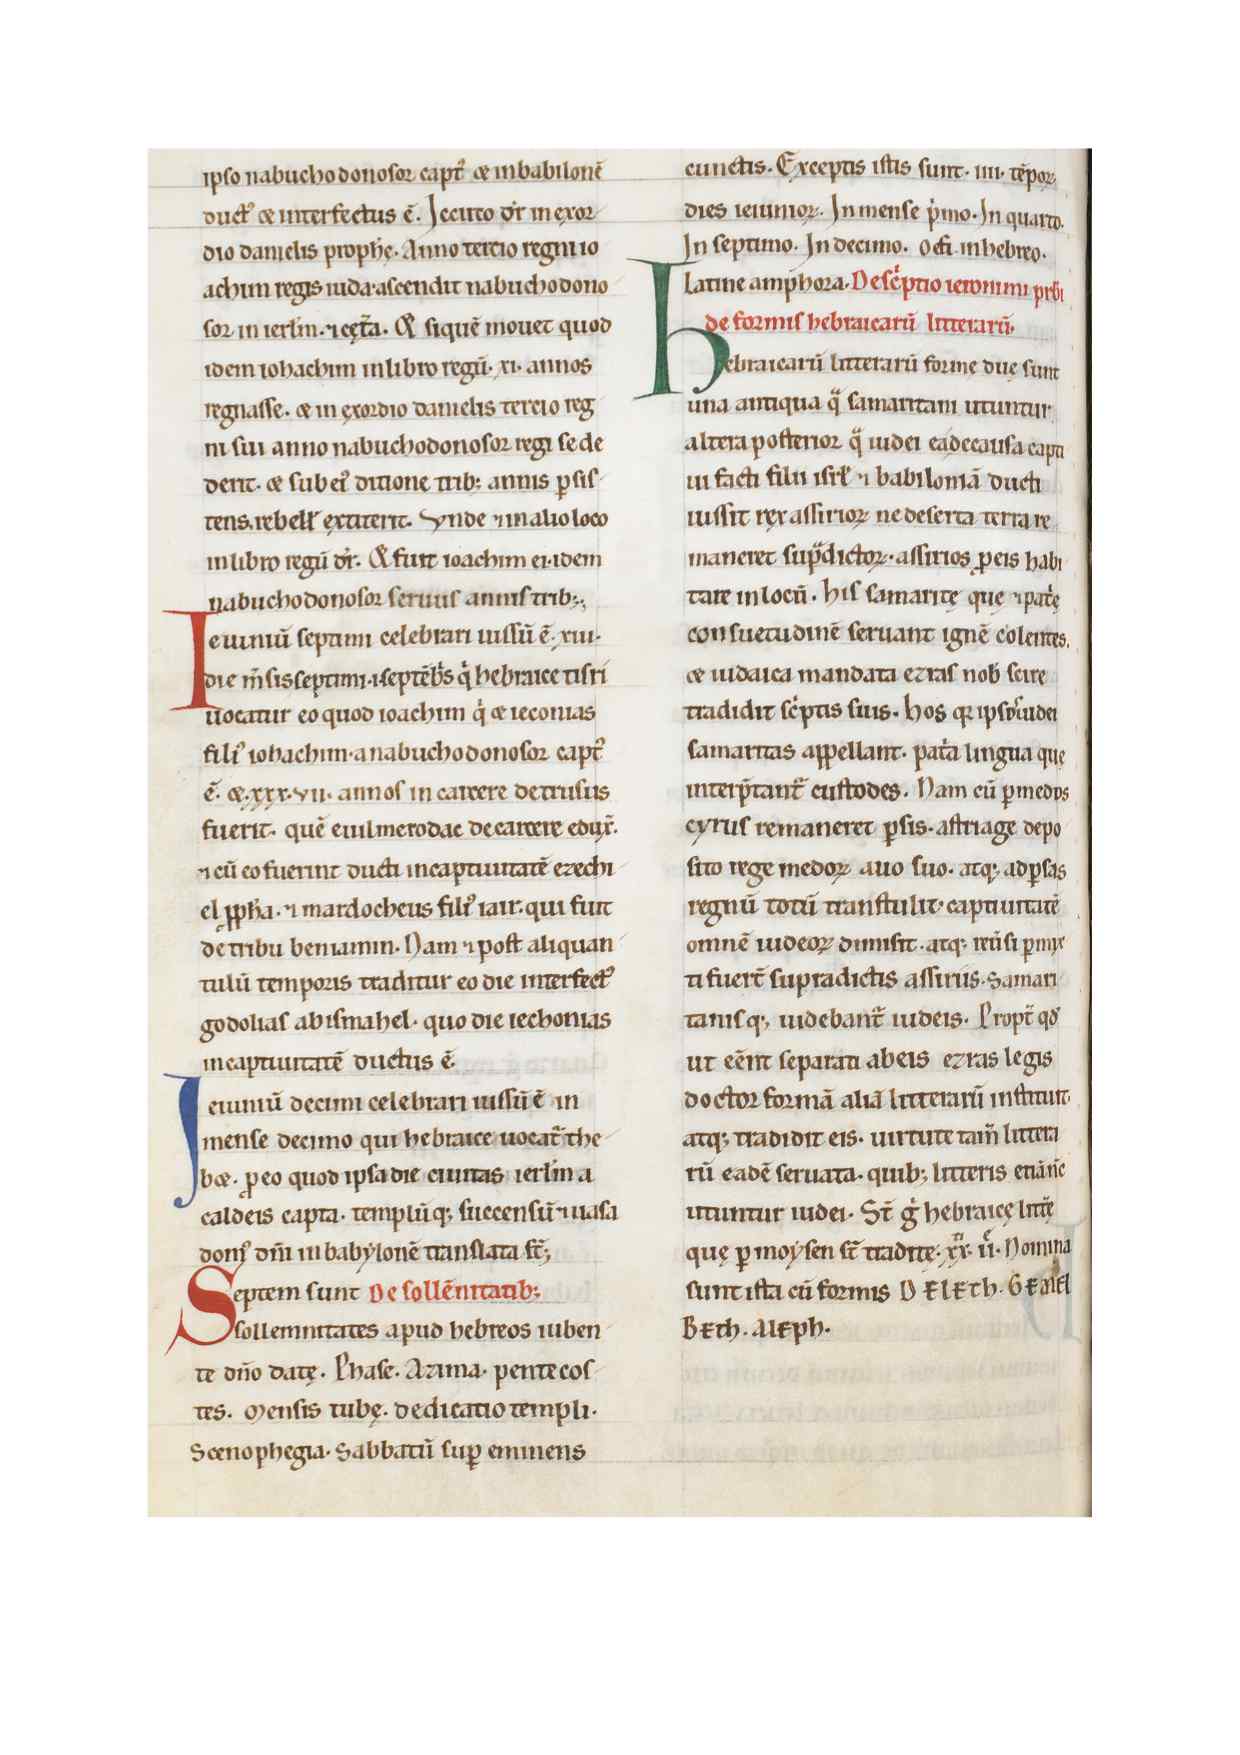 ipso nabuchodonosor capt᷒ & inbabilonē
duct᷒ & interfectus ē. Jccirco dr̄ in exor
dio danielis prophę. Anno tercio regni io
achim regis iuda ascendit nabuchodono
sor in ierl̄m. ⁊ cęt̄a. Et siquē mouet quod
idem iohachim in libro regū. xi. annos
regnasse. & in exordio danielis tercio reg
ni sui anno nabuchodonosor regi se de
derit. & sub ei᷒ ditione trib; annis ꝑsis
tens. rebell᷒ extiterit. Vnde ⁊ in alio loco
in libro regū dr̄. Et fuit ioachim ei. idem
nabuchodonosor seruus annis trib;
Ieiuniū septimi celebrari iussū ē. xiii.
die m̄sis septimi. i septēb̄s qͥ hebraice tisri
uocatur eo quod ioachim qͥ & ieconias
fili᷒ iohachim. a nabuchodonosor capt᷒
ē. & .xxx.vii. annos in carcere detrusus
fuerit. quē euilmerodac de carcere edux̄.
⁊ cū eo fuerint ducti in captiuitatē ezechi
el ꝓph̄a. ⁊ mardocheus fili᷒ iair. qui fuit
de tribu beniamin. Nam ⁊ post aliquan
tulū temporis traditur eo die interfect᷒
godolias ab ismahel. quo die iechonias
in captiuitatē ductus ē.
Jeiuniū decimi celebrari iussū ē in
mense decimo qui hebraice uocat᷑ the
b&. ꝑ eo quod ipsa die ciuitas ierl̄m a
caldeis capta. templūq; succensū ⁊ uasa
dom᷒ dn̄i in babylonē translata st̄;
Septem sunt De sollēnitatib;
sollemnitates apud hebreos iuben
te dn̄o datę. Phase. Azima. pentecos
tes. Mensis tubę. dedicatio templi.
Scenophegia. Sabbatū suꝑ eminens
cunctis. Exceptis istis sunt. iiii. tēporꝝ
dies ieiuniorꝝ. In mense pͥmo. In quarto.
In septimo. In decimo. Oefi. in hebreo.
Latine amphora. De scͥptio ieronimi pr̄bi
de formis hebraicarū litterarū.
hebraicarū litterarū formę duę sunt
una antiqua qͣ samaritani utuntur
altera posterior qͣ iudei ea de causa capti
ui facti filii isrl̄ ⁊ babiloniā ducti
iussit rex assiriorꝝ ne deserta terra re
maneret sup̄dictorꝝ. assirios ꝑ eis habi
tare in locū. his samaritę que ⁊ patͥę
consuetudinē seruant ignē colentes.
& iudaica mandata ezras nob̄ scire
tradidit scͥptis suis. hos qꝫ ipsoͥ iudei
samaritas appellant. patͥa lingua que
interp̄tant᷑ custodes. Nam cū ꝑ medos
cyrus remaneret ꝑsis. astriage depo
sito rege medorꝝ auo suo. atq; ad ꝑsas
regnū totū transtulit. captiuitatē
omnē iudeorꝝ dimisit. atq; reūsi ꝑmix
ti fuert̄ supradictis assiriis. Samari
tanisq; uidebant᷑ iudeis. Propt̄ qd̄
ut eēnt separati ab eis ezras legis
doctor formā aliā litterarū instituit.
atq; tradidit eis. uirtute tam̄ littera
rū eadē seruata. quib; litteris etiā nc̄
utuntur iudei. St̄ gͥ hebraicę litt̄ę
quę ꝑ moysen st̄ traditę. xx. ii. Nomina
sunt ista cū formis DELETh. GEMEL
BETh. ALEPh.